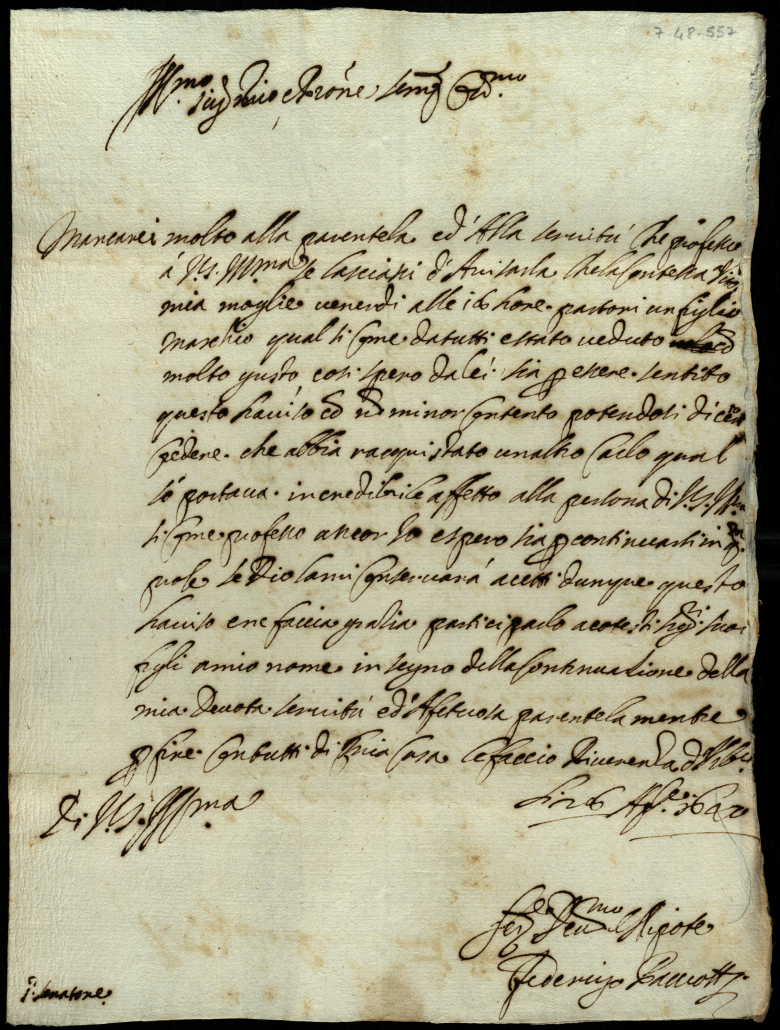 7-48-557
Ill.mo Sig.r mio e Prone semp Col.mo
Mancarei molto alla parentela ed' Alla servitú che professo
á V.S. Ill.ma se lasciassi d'Avisarla che la Contessa
mia moglie venerdi alle 16 hore partori un figlio
maschio qual si Come da tutti é stato veduto con
molto gusto, cosi spero da lei sia p essere sentito
questo haviso con non minor Contento potendosi dire
che abbia racquistato un altro Carlo qual
portava incredibile affetto alla persona di V.S. Ill.ma
si Come professo ancor Io e spero sia p continuarsi in
prole se Dio lo mi Conservará acetti dunque questo
haviso e ne faccia gratia participarlo a cotesti Sig.ri suoi
figli a mio nome in segno della Continuatione della
mia Devota servitú ed' Afetuosa parentela mentre
p fine Con tutti di mia Casa le faccio Riverenza
Di V.S. Ill.ma
li 26
Dev.mo Nipote
Federigo
S. Senatore